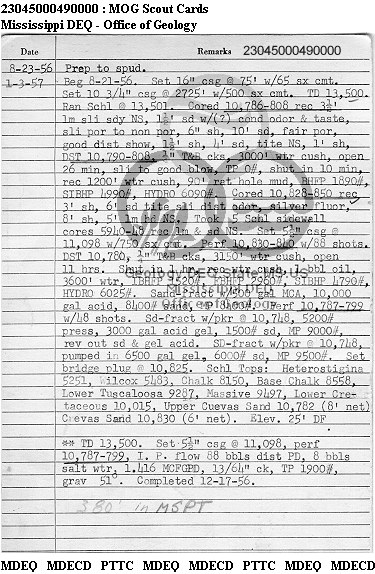 23045000490000 : MOG Scout Cards
Mississippi DEQ - Office of Geology
Date Remarks 23045000490000
8-23-56 Prep to spud.
1-3-57 Beg 8-21-56. Set 16" csg @ 75' w/65 sx cmt.
Set 10 3/4" csg @ 2725' w/500 sx cmt. TD 13,500.
Ran Schl @ 13,501. Cored 10,786-808 rec 3½'
lm sli sdy NS, 1½' sd w/(?) con odor & taste,
sli por to non por, 6" sh, 10' sd, fair por,
good dist show, 1½' sh, 4' sd, tite NS, 1' sh,
DST 10,790-808, T&B cks, 3000' wtr cush, open
26 min, sli to good blow, TP 0#, shut in 10 min,
rec 1200' wtr cush, 90' rat hole mud, BHFP 1890#,
SIBHP 4990#, HYDRO 6090#. Cored 10,828-850 rec
3' sh, 6' sd tite sli dist odor, silver fluor,
8' sh, 5' lm hd NS. Took 45 Schl sidewall
cores 5940-48 rec lm & sd NS. Set 5½" csg @
11,098 w/750 sx cmt. Perf 10,830-840 w/88 shots.
DST 10,780, ¼" T&B cks, 3150' wtr cush, open
11 hrs. Shut in 1 hr, rec wtr cush, 1 bbl oil,
3600' wtr, IBHFP 1520#, FBHFP 2960#, SIBHP 4790#,
HYDRO 6025#. Sand-fract w/500 gal MCA, 10,000
gal acid, 8400# sand, MP 8400#. Perf 10,787-799
w/48 shots. Sd-fract w/pkr @ 10,748, 5200#
press, 3000 gal acid gel, 1500# sd, MP 9000#,
rev out sd & gel acid. SD-fract w/pkr @ 10,748,
pumped in 6500 gal gel, 6000# sd, MP 9500#. Set
bridge plug @ 10,825. Schl Tops: Heterostigina
5251, Wilcox 5483, Chalk 8150, Base Chalk 8558,
Lower Tuscaloosa 9287, Massive 9497, Lower Cre-
taceous 10,015, Upper Cuevas Sand 10,782 (8' net)
Cuevas Sand 10,830 (6' net). Elev. 25' DF
** TD 13,500. Set 5½" csg @ 11,098, perf
10,787-799, I. P. flow 88 bbls dist PD, 8 bbls
salt wtr, 1.416 MCFGPD, 13/64" ck, TP 1900#,
grav 51°. Completed 12-17-56.
380' in MSPT
MDEQ MDECD PTTC MDEQ MDECD PTTC MDEQ MDECD